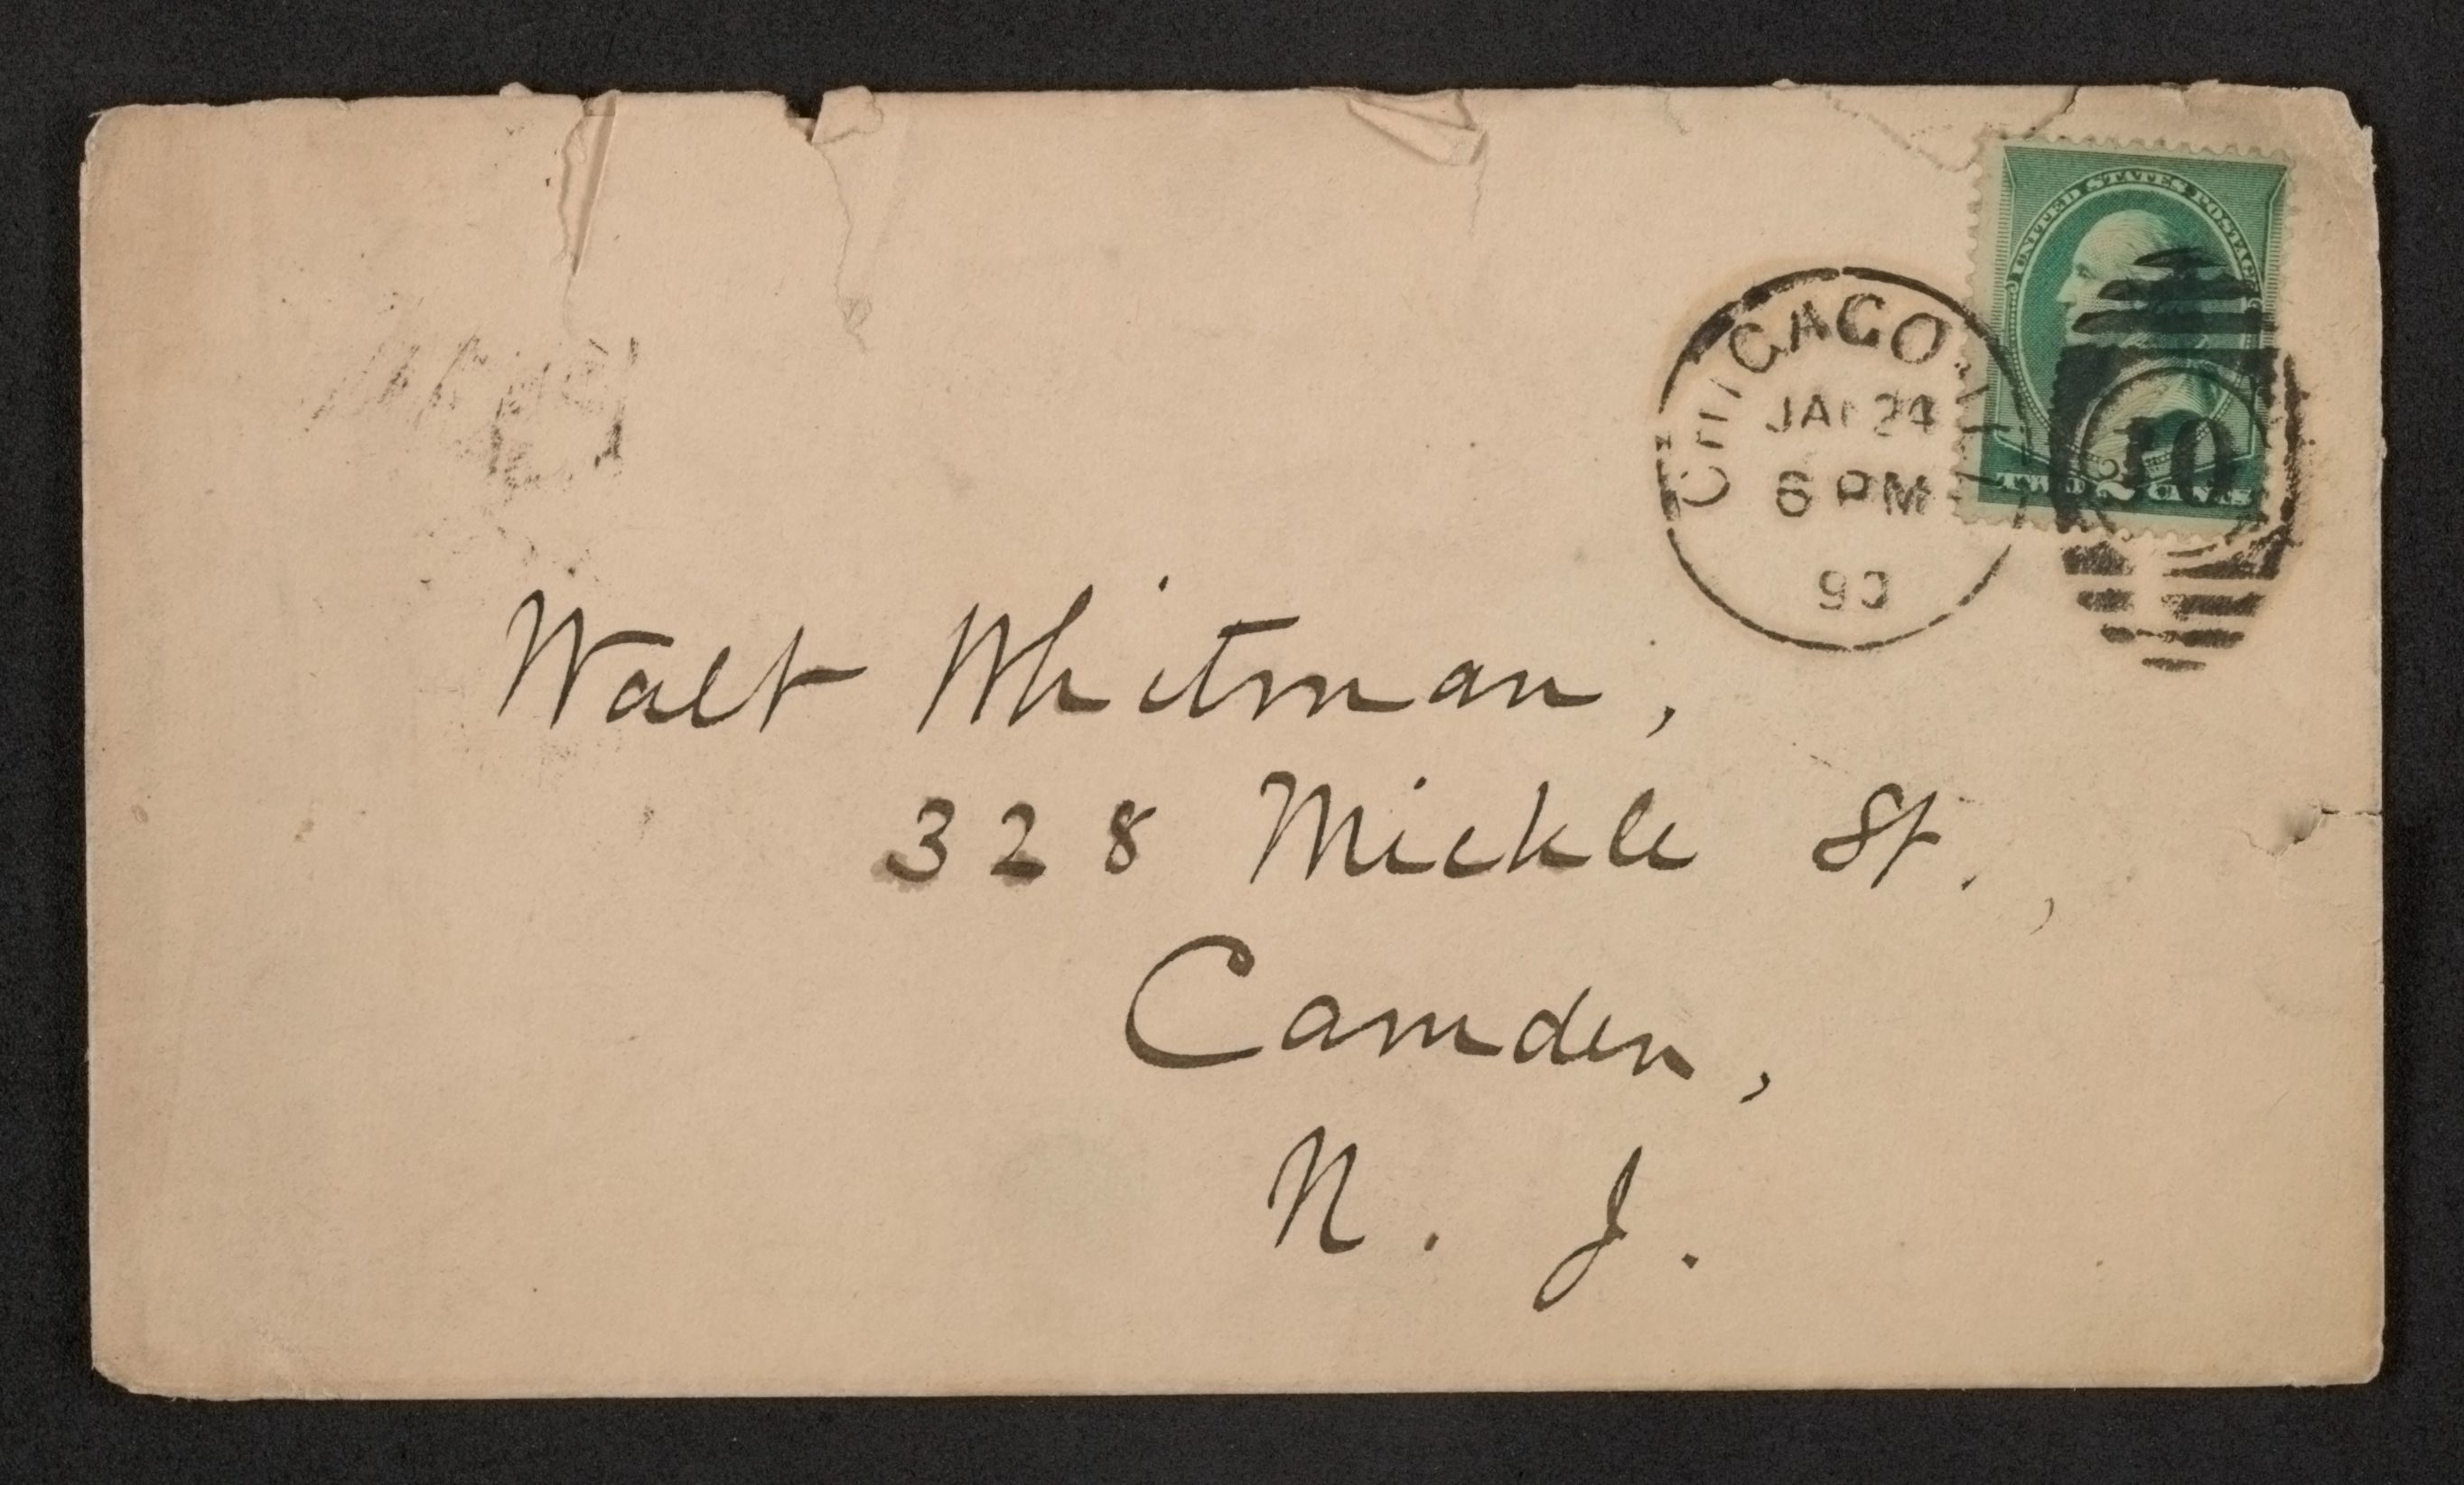 UNITED STATES POSTAGE
CHICAGO, ILL.
JAN 24
6 PM
90
10
TWO 2 CENTS
Walt Whitman,
328 Mickle St.,
Camden,
N. J.